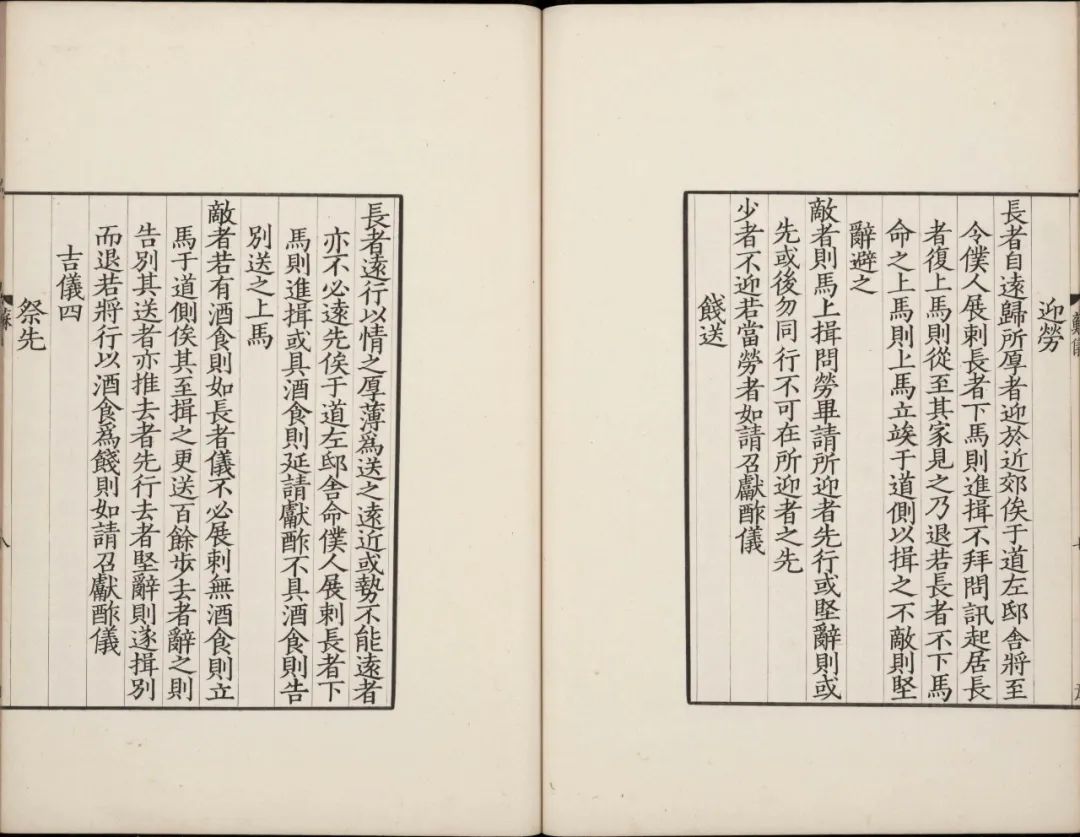 迎勞
長者自遠歸所厚者迎於近郊俟于道左邸舍將至
令僕人展剌長者下馬則進揖不拜問訊起居長
者復上馬則從至其家見之乃退若長者不下馬
命之上馬則上馬立竢于道側以揖之不敵則堅
辭避之
敵者則馬上揖問勞畢請所迎者先行或堅辭則或
先或後勿同行不可在所迎者之先
少者不迎若當勞者如請召獻酢儀
餞送
長者遠行以情之厚薄為送之遠近或勢不能遠者
亦不必遠先俟于道左邸舍命僕人展剌長者下
馬則進揖或具酒食則延請獻酢不具酒食則告
別送之上馬
敵者若有酒食則如長者儀不必展剌無酒食則立
馬于道側俟其至揖之更送百餘步去者辭之則
告別其送者亦推去者先行去者堅辭則遂揖別
而退若將行以酒食為餞則如請召獻酢儀
吉儀四
祭先